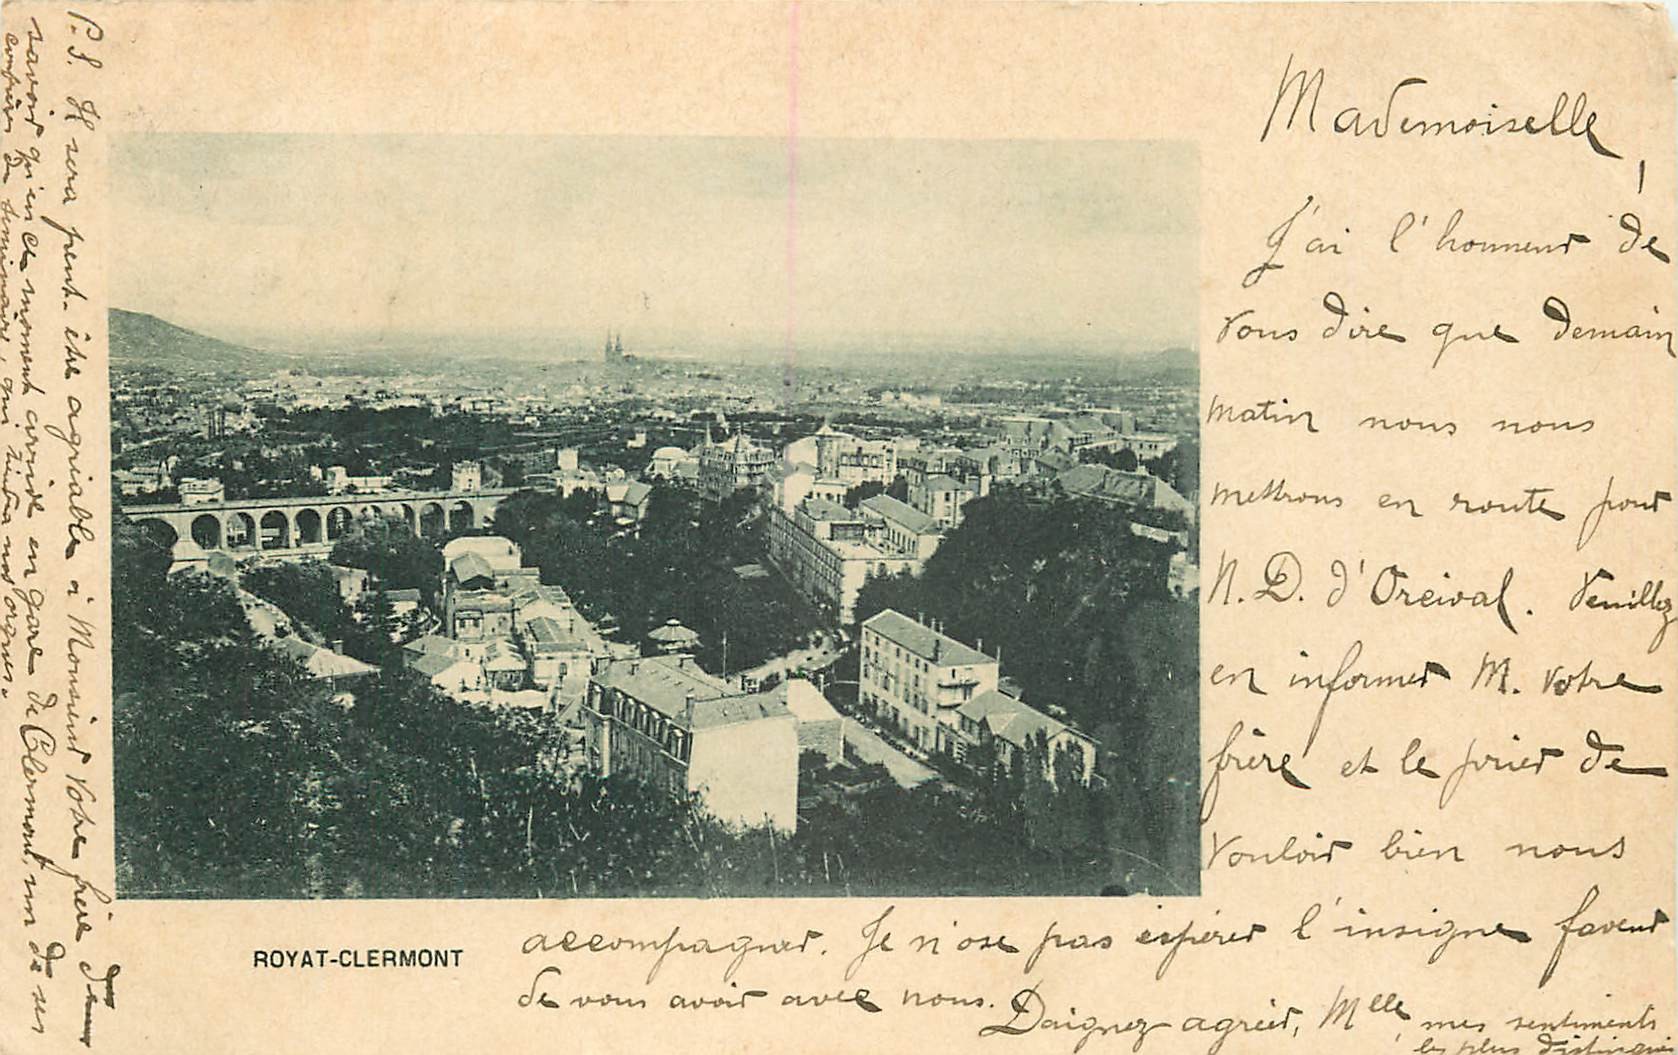 Mademoiselle,
J'ai l'honneur de
vous dire que demain
matin nous nous
mettrons en route pour
N. D. d'Orcival. Veuillez
en informer M. votre
frère et le prier de
vouloir bien nous
accompagner. Je n'ose pas espérer l'insigne faveur
de vous avoir avec nous.
Daignez agréer, Mlle, mes sentiments
les plus distingués
ROYAT-CLERMONT
P.S. Il sera peut-être agréable à Monsieur votre frère de
savoir qu'en ce moment arrive en gare de Clermont, un de ses
confrères de séminaire, qui tiendra nos orgues.